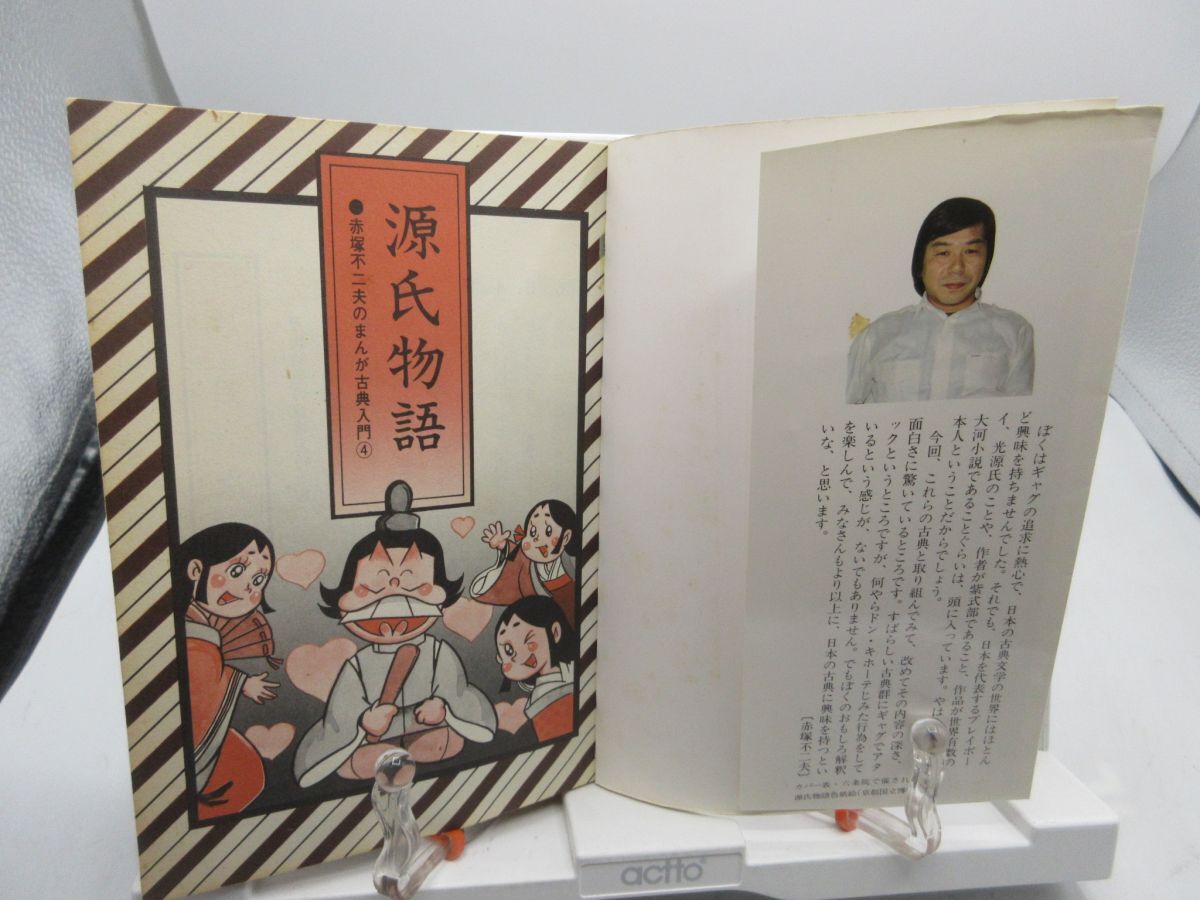 源氏物語
●赤塚不二夫のまんが古典入門④
ぼくはギャグの追求に熱心で、日本の古典文学の世界にはほとん
ど興味を持ちませんでした。それでも、日本を代表するプレイボー
イ、光源氏のことや、作者が紫式部であること、作品が世界有数の
大河小説であることくらいは、頭に入っています。やは
本人ということだからでしょう。
今回、これらの古典と取り組んでみて、改めてその内容の深さ、
面白さに驚いているところです。すばらしい古典群にギャグでアタ
ックというところですが、何やらドン・キホーテじみた行為をして
いるという感じが、ないでもありません。でもぼくのおもしろ解釈
を楽しんで、みなさんもより以上に、日本の古典に興味を持つとい
いな、と思います。
〔赤塚不二夫〕
カバー表・六条院で催され
源氏物語色紙絵（京都国立博
actto